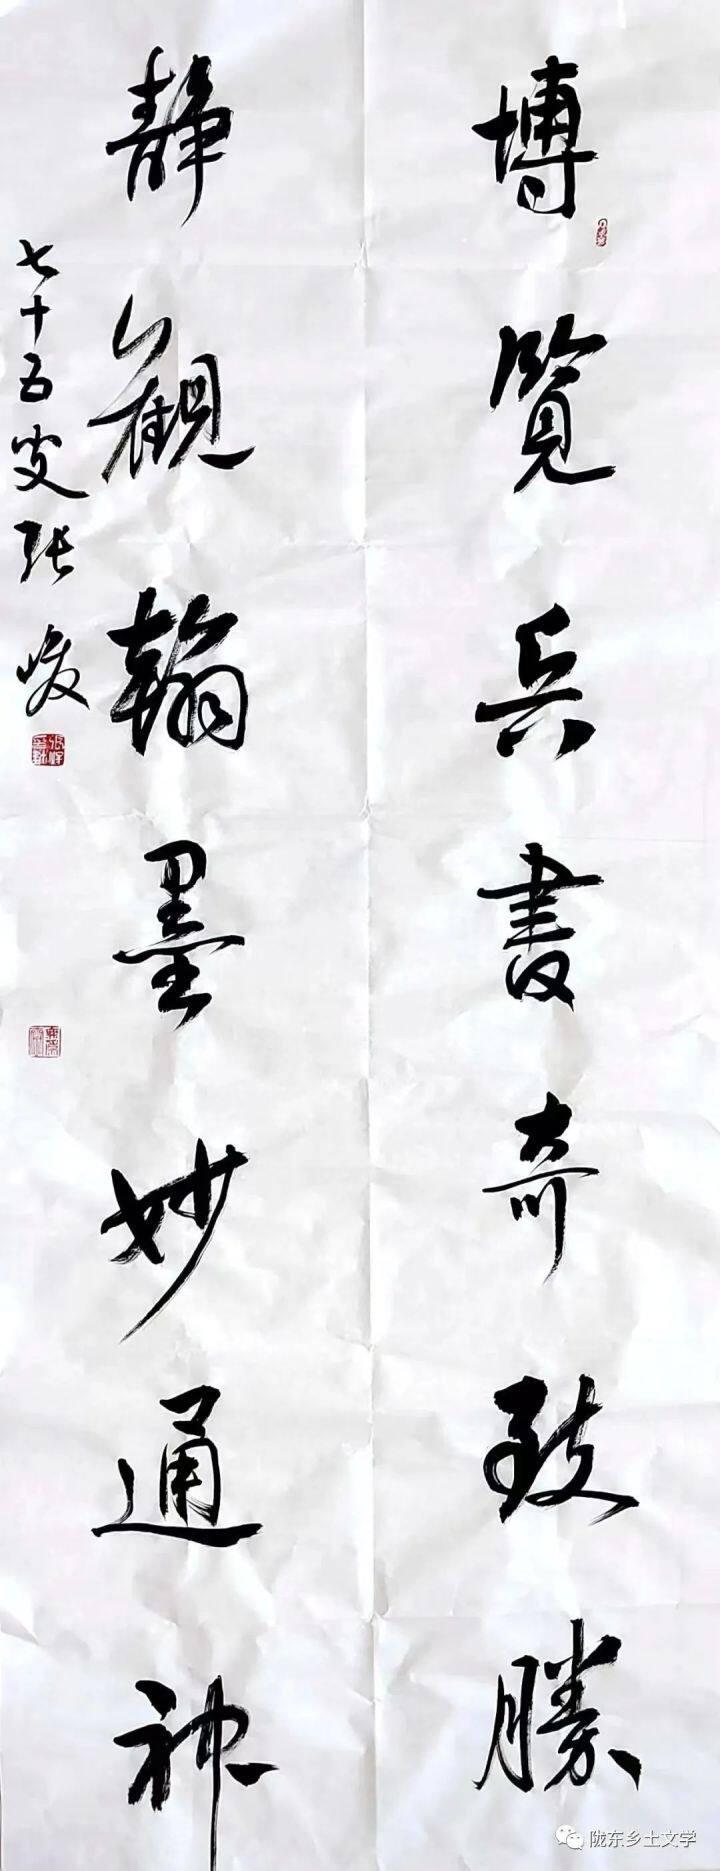 博覽兵書奇致勝
靜觀翰墨妙通神
七十五叟张峻
陇东乡土文学